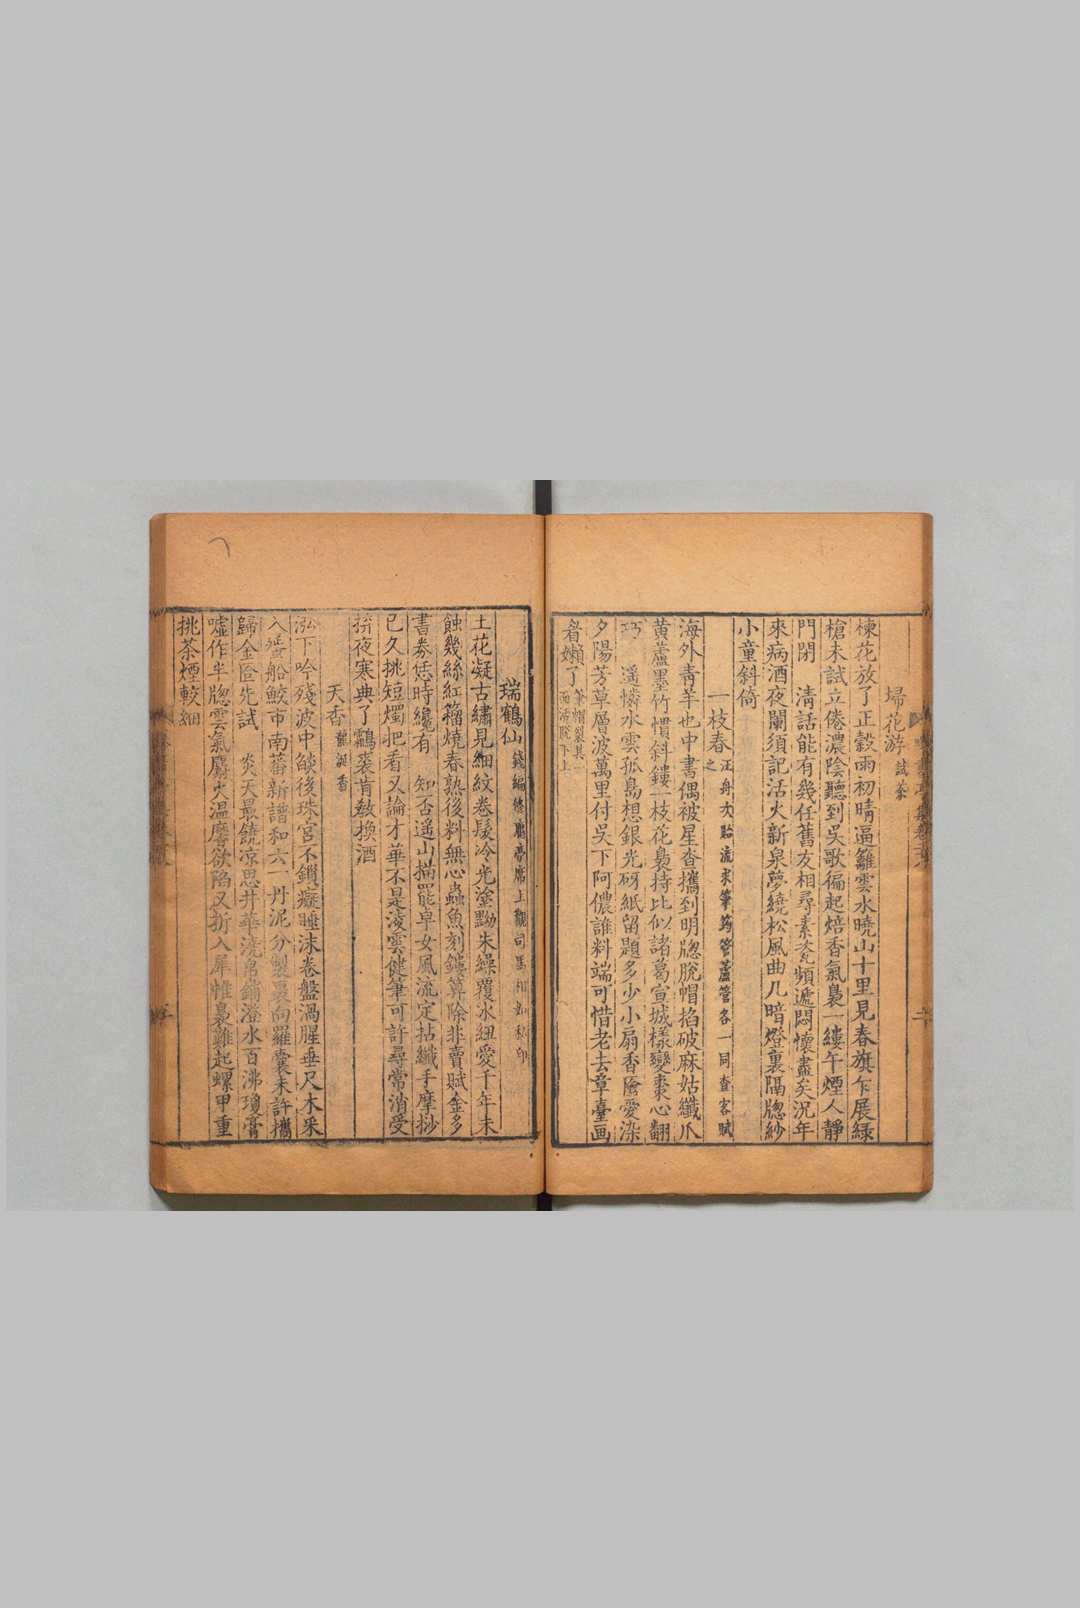 埽花游試茶
楝花放了正穀雨初晴逼籬雲水曉山十里見春旗乍展綠
槍未試立倦濃陰聽到吳歌徧起焙香氣裊一縷午煙人靜
門閉　清話能有幾任舊友相尋素瓷頻遞悶懷盡矣況年
來病酒夜闌須記活火新泉夢繞松風曲几暗燈裏隔牕紗
小童斜倚
一枝春汪舟次貽流求筆筠管蘆管各一同查客賦之
海外靑羊也中書偶被星查攜到明牕脫帽掐破麻姑纖爪
黃蘆墨竹慣斜鏤一枝花裊持比似諸葛宣城樣變棗心翻
巧　遙憐水雲孤島想銀光砑紙留題多少小扇香隂愛染
夕陽芳草層波萬里付吳下阿儂誰料端可惜老去章臺画
眉嬾了筆帽裂其一面活脫下上
瑞鶴仙錢編修庽亭席上觀司馬相如私印
土花凝古繡見細紋卷髮冷光塗黝朱繰覆冰紐愛千年未
蝕幾絲紅籀燒春熟後料無心蟲魚刻鏤算除非賣賦金多
書券恁時纔有　知否遙山描罷卓女風流定拈纖手摩挱
已久挑短燭把看又論才華不是淩雲健筆可許尋常消受
拚夜寒典了鸘裘肯敎換酒
天香龍涎香
泓下吟殘波中燄後珠宮不鎖癡睡沫卷盤渦腥垂尺木采
入蜑船鮫市南蕃新譜和六一丹泥分製裹向羅囊未許攜
歸金匳先試　炎天最饒凉思井華澆帛鋪澄水百沸瓊膏
噓作半牕雲氣麝火温黁欲陷又折入犀帷裊難起螺甲重
挑茶煙較細